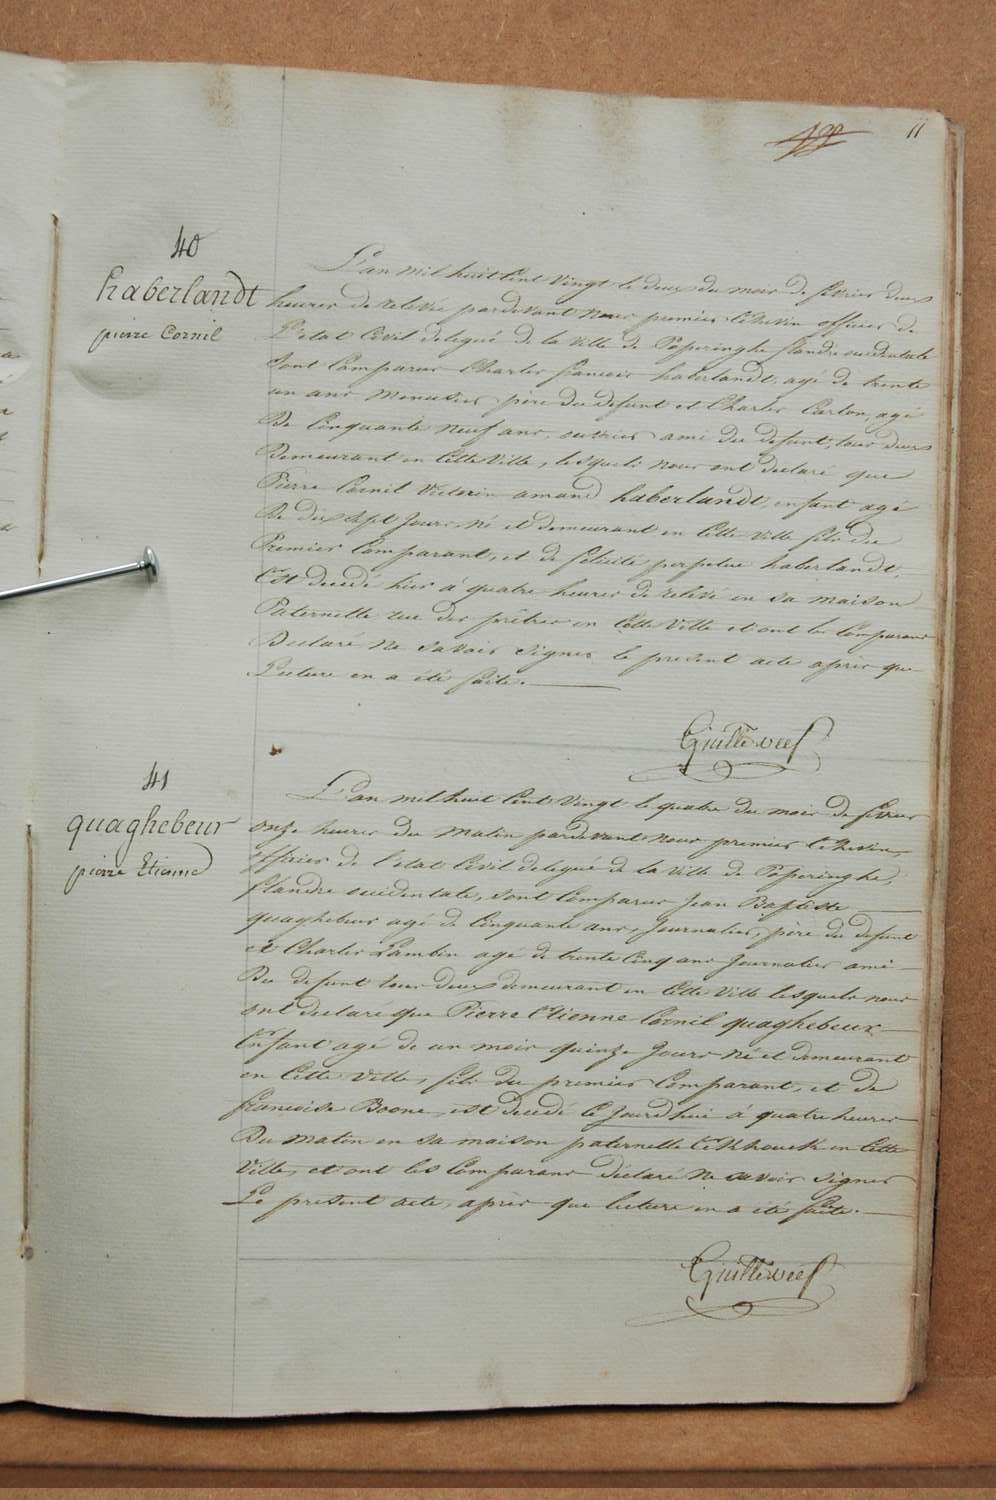 11
40
haberlandt
pierre Cornil
L'an mil huit Cent Vingt le deux du mois de fevrier deux
heures de relevée pardevant nous premier Echevin officier de
L'etat Civil delegué de la Ville de Poperinghe flandre occidentale
Sont Comparus Charles francois haberlandt, agé de trente
un ans Menuisier père du defunt et Charles Carton, agé
De Cinquante neuf ans, ouvrier ami du defunt, tous deux
Demeurant en Cette Ville, lesquels nous ont declaré que
Pierre Cornil Victorin amand haberlandt, enfant agé
De dix sept Jours né et demeurant en Cette Ville fils du
Premier Comparant, et de félicité perpetue haberlandt,
Est decedé hier à quatre heures de relevé en sa maison
Paternelle rue des prêtres en Cette Ville et ont les Comparans
Declaré ne savoir signer le present acte après que
Lecture en a été faite.
41
quaghebeur
pierre Etienne
L'an mil huit Cent Vingt le quatre du mois de fevrier
onze heures du matin pardevant nous premier Echevin,
officier de l'etat Civil delegué de la Ville de Poperinghe,
flandre occidentale, sont Comparus Jean Baptiste
quaghebeur agé de Cinquante ans, Journalier, père du defunt
et Charles Lambin agé de trente Cinq ans Journalier ami
Du defunt tous deux demeurant en Cette Ville lesquels nous
ont declaré que Pierre Etienne Cornil quaghebeur
Enfant agé de un mois quinze Jours né et demeurant
en Cette Ville, fils du premier Comparant, et de
francoise Boone, est decedé Ce Jourd'hui à quatre heures
Du matin en sa maison paternelle en Cette
Ville, et ont les Comparans déclaré ne savoir signer
Le present acte, après que lecture en a été faite.